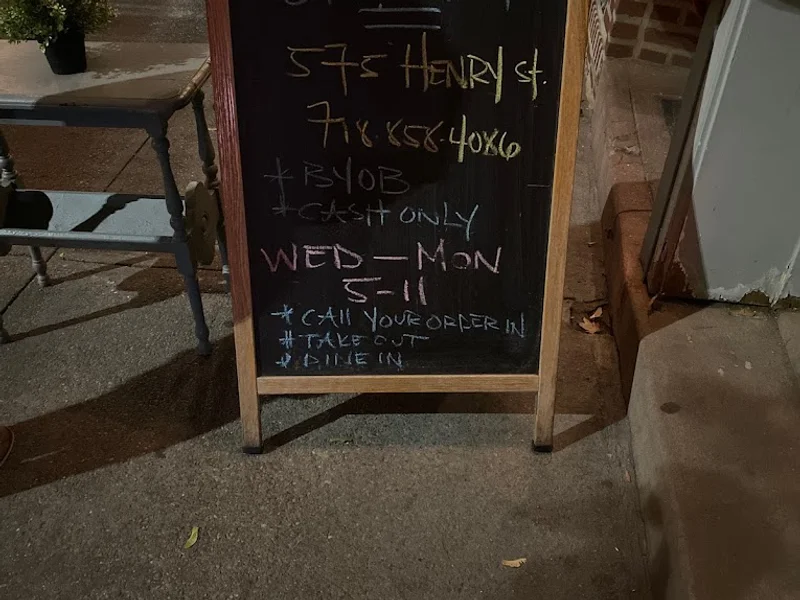 575 HENRY St.
718.858.4086
* BYOB
* CASH ONLY
WED — MON
5-11
* CAll YOUR ORDER IN
* TAKE OUT
* DINE IN